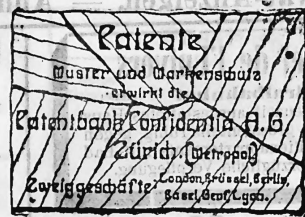 Patente
Muster und Markenschutz
erwirkt die
Patentbank Confidentia A.G
Zürich. (Metropol)
Zweiggeschäfte: London, Brüssel, Berlin,
Basel, Genf, Lyon.